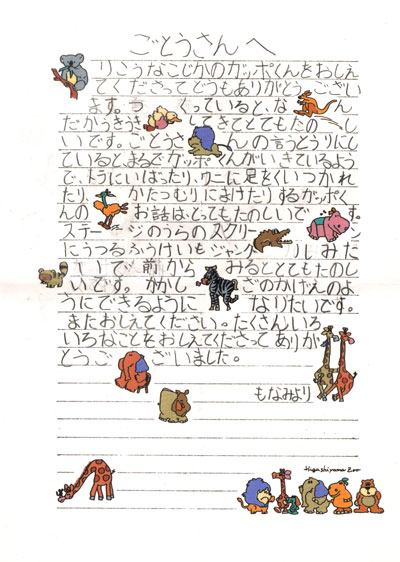 ごとうさんへ
りこうなこじかのガッポくんをおしえ
てくださってどうもありがとうござい
ます。つくっていると、なん
だかうきうきしてきてとてもたの
しいです。ごとうさんの言うとうりにし
ていると、まるでガッポくんがいきているよう
で、トラにいばったり、ウニに足をくいつかれ
たり、かたつむりにまけたりするガッポく
んのお話は、とってもたのしいです。
ステージのうらのスクリーン
にうつるふうけいもジャングルみた
いで前からみるととてもたのし
いです。かかしごのかげえのよ
うにできるようになりたいです。
またおしえてください。たくさんいろ
いろなことをおしえてくださってありが
とうございました。
もなみより
Higashiyama Zoo